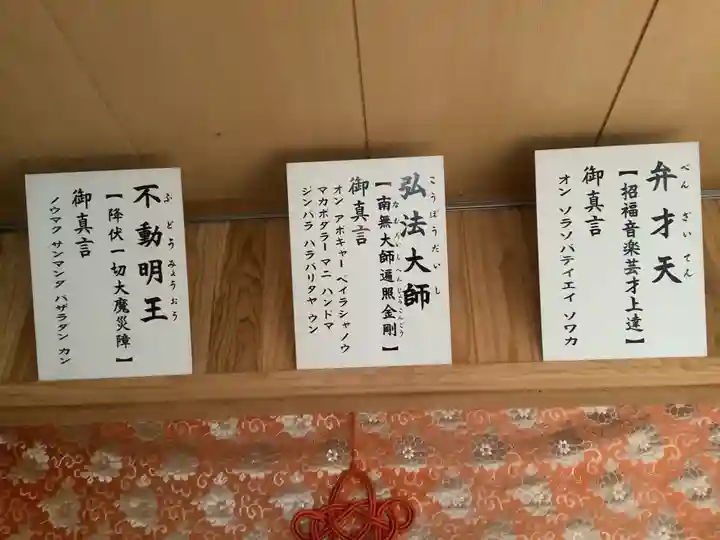 弁才天
べんざいてん
【招福音楽芸才上達】
御真言
オン ソラソバテイエイ ソワカ
弘法大師
こうぼうだいし
【南無大師遍照金剛】
なむだいしへんじょうこんごう
御真言
オン アボキャー ベイラシャノウ
マカボダラー マニ ハンドマ
ジンバラ ハラバリタヤ ウン
不動明王
ふどうみょうおう
【降伏一切大魔災障】
御真言
ノウマク サンマンダ バザラダン カン